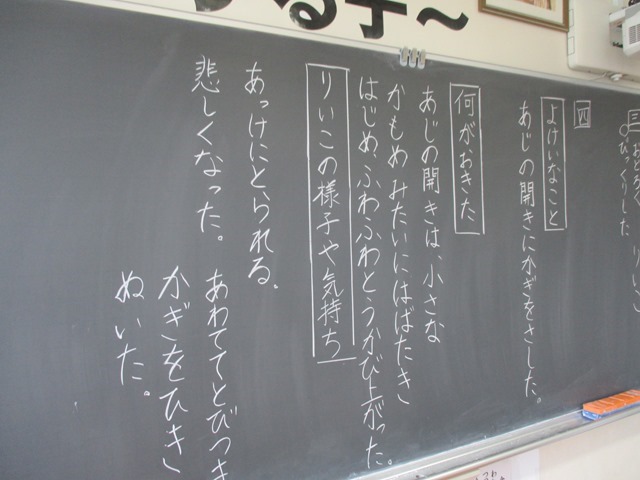 る子～
三 おどろく りいこ
びっくりした
四
よけいなこと
あじの開きにかぎをさした。
何がおきた
あじの開きは、小さな
かもめみたいにはばたき
はじめ、ふわふわとうかび上がった。
りいこの様子や気持ち
あっけにとられる。
悲しくなった。
あわててとびつき
かぎをひき
ぬいた。